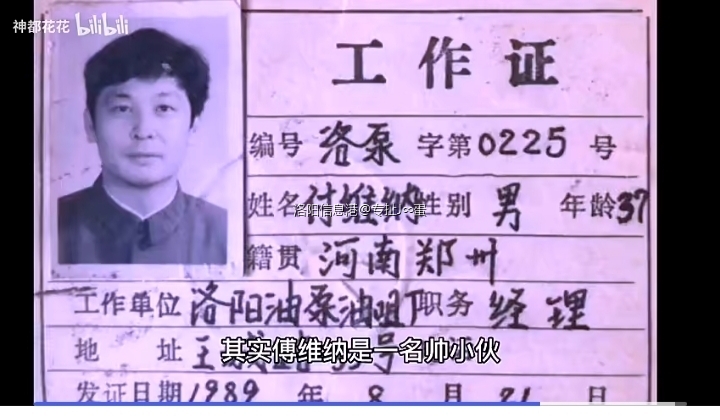 神都花花 bilibili
工作证
编号 洛泵 字第0225号
姓名付维纳性别 男 年龄37
洛阳信息港@专扯Jee蛋
籍贯 河南郑州
工作单位 洛阳油泵油咀厂职务 经理
地 址 王城 号
其实傅维纳是一名帅小伙
发证日期1989年 8 月 21 日